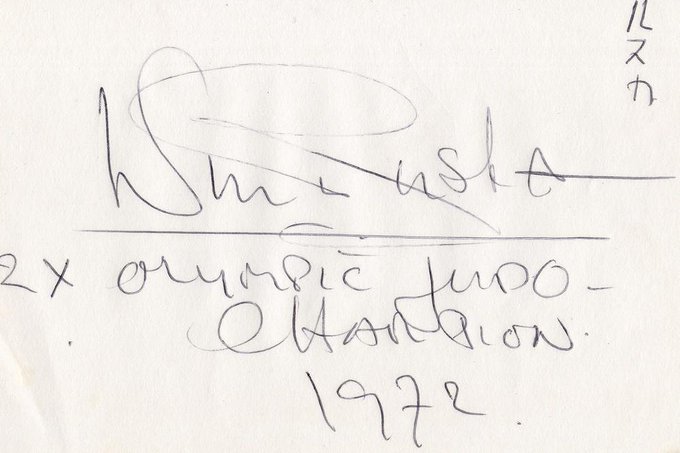 ルスカ
Wm Ruska
2X OLYMPIC JUDO-
CHAMPION.
1972.